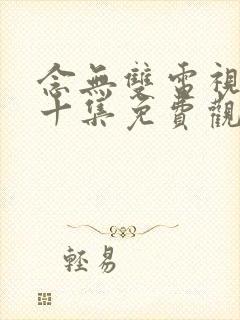 念無雙電視
十集免費觀
輕易